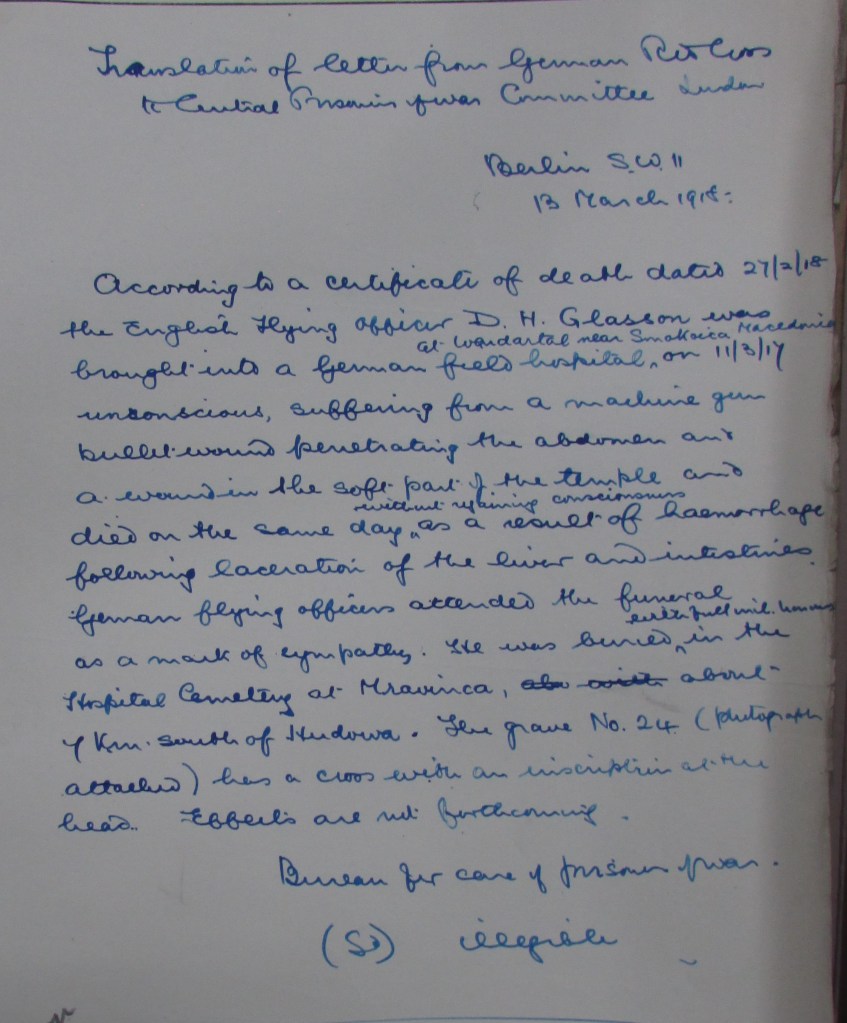 Translation of letter from German Red Cross
to Central Prisoners of war Committee London
Berlin S.W. 11
13 March 1918.
According to a certificate of death dated 27/2/18
the English flying officer D. H. Glasson was
at Wandartal near Smokvica Macedonia
brought into a German field hospital, on 11/3/17
unconscious, suffering from a machine gun
bullet wound penetrating the abdomen and
a wound in the soft part of the temple and
without regaining consciousness
died on the same day, as a result of haemorrhage
following laceration of the liver and intestines.
German flying officers attended the funeral
with full mil. honours
as a mark of sympathy. He was buried in the
Hospital Cemetery at Mravinca, about
7 Km. south of Hudowa. The grave No. 24 (photograph
attached) has a cross with an inscription at the
head. Effects are not forthcoming.
Bureau for care of prisoners of war.
(Sd) illegible